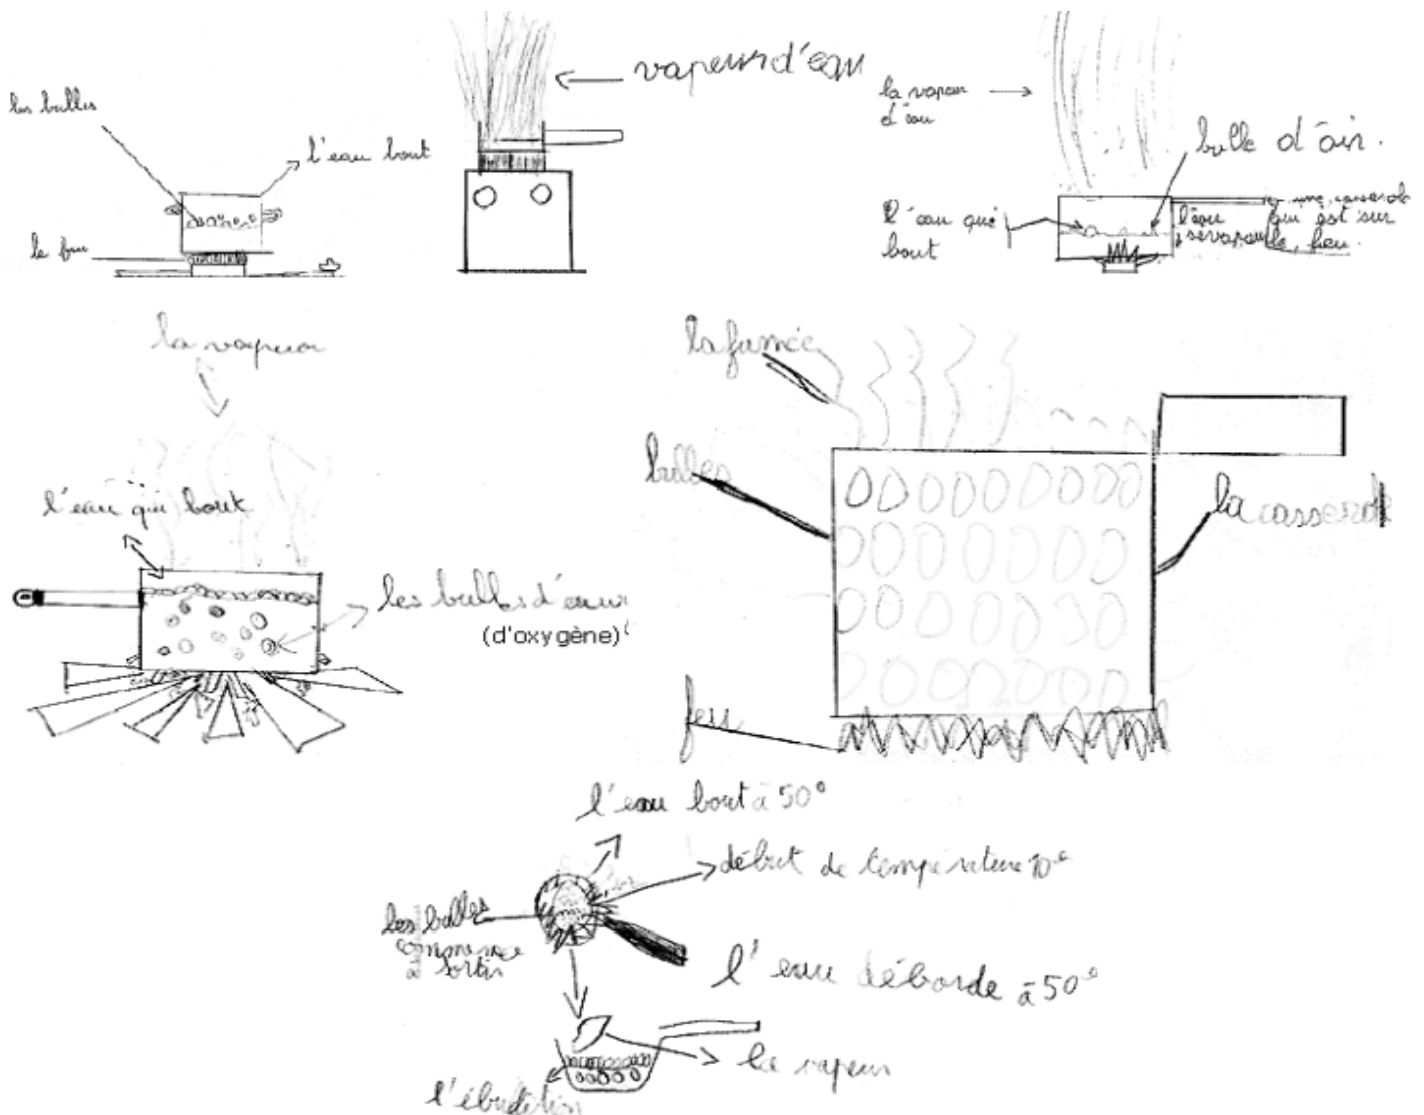 les bulles
l'eau bout
le feu
vapeur d'eau
la vapeur
d'eau
bulle d'air.
l'eau qui
bout
l'eau
s'évapore
une casserole
qui est sur
le feu.
la vapeur
l'eau qui bout
les bulles d'eau
(d'oxygène)
la fumée
bulles
la casserole
feu
l'eau bout à 50°
début de température
les bulles
commence
à sortir
l'eau déborde à 50°
la vapeur
l'ébulition